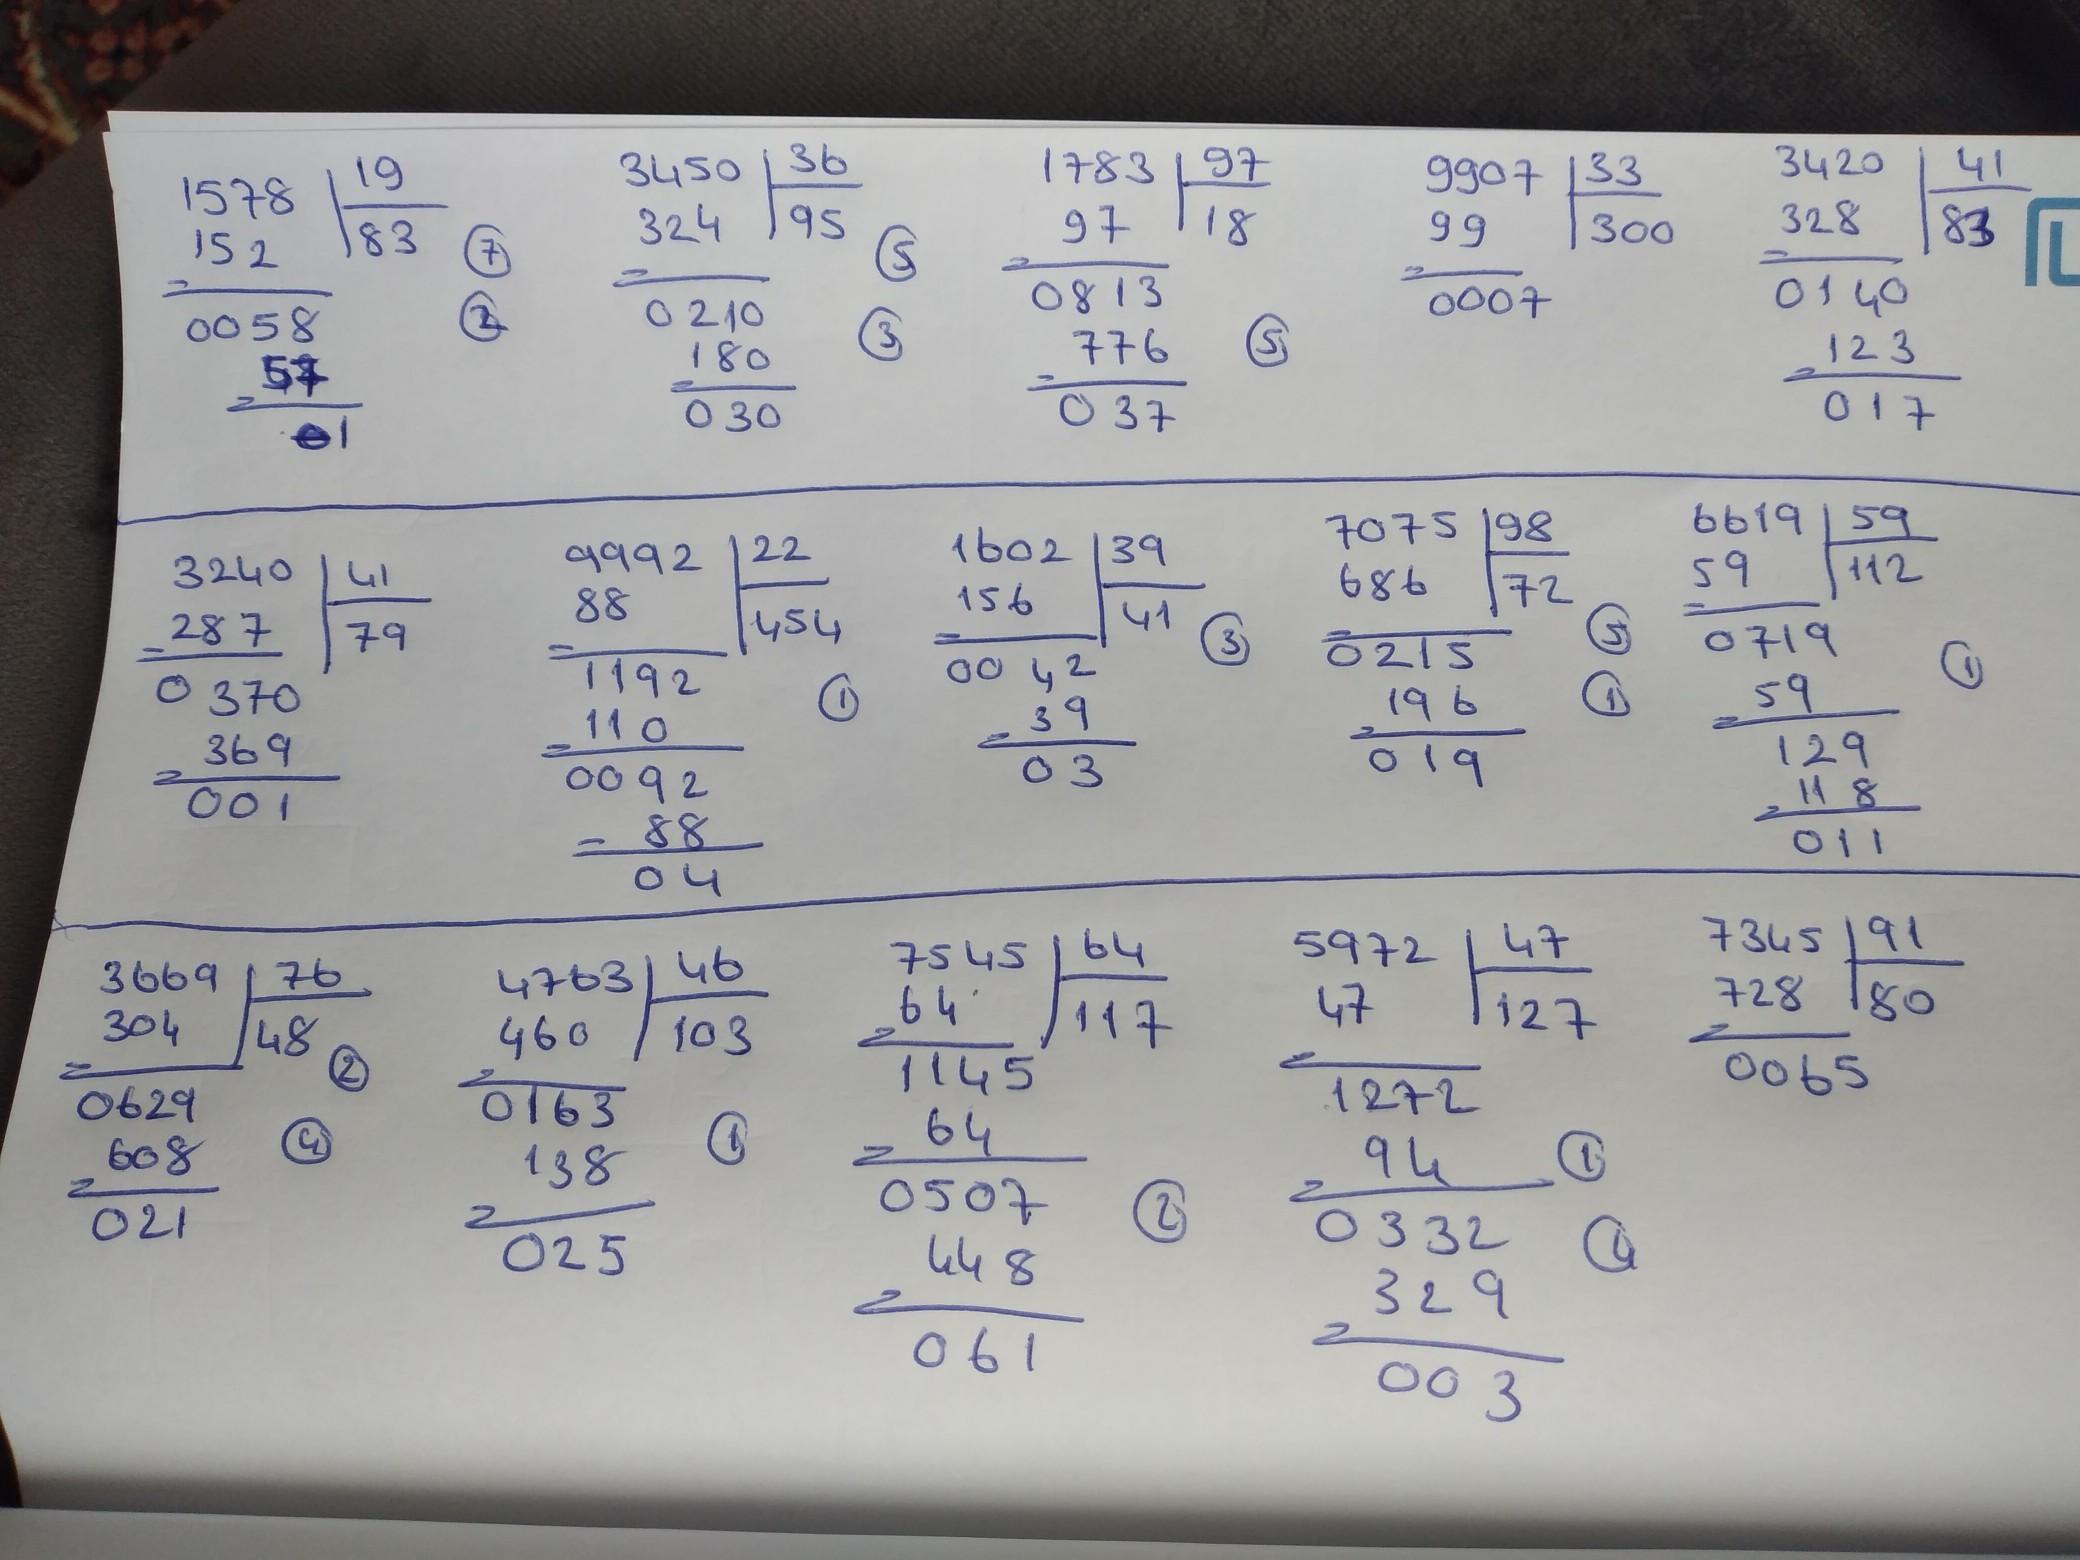 1578 19
152 83 7
0058 2
57
01
3450 36
324 95 5
0210 3
180
030
1783 97
97 18
0813
776 5
037
9907 33
99 300
0007
3420 41
328 83
0140
123
017
3240 41
287 79
0370
369
001
9992 22
88 454
1192 1
110
0092
88
04
1602 39
156 41 3
0042
39
03
7075 98
686 72 5
0215 1
196
019
6619 59
59 112
0719 1
59
129
118
011
3669 76
304 48 2
0629 4
608
021
4763 46
460 103
0163 1
138
025
7545 64
64 117
1145
64
0507 2
448
061
5972 47
47 127
1272
94 1
0332 4
329
003
7345 91
728 80
0065